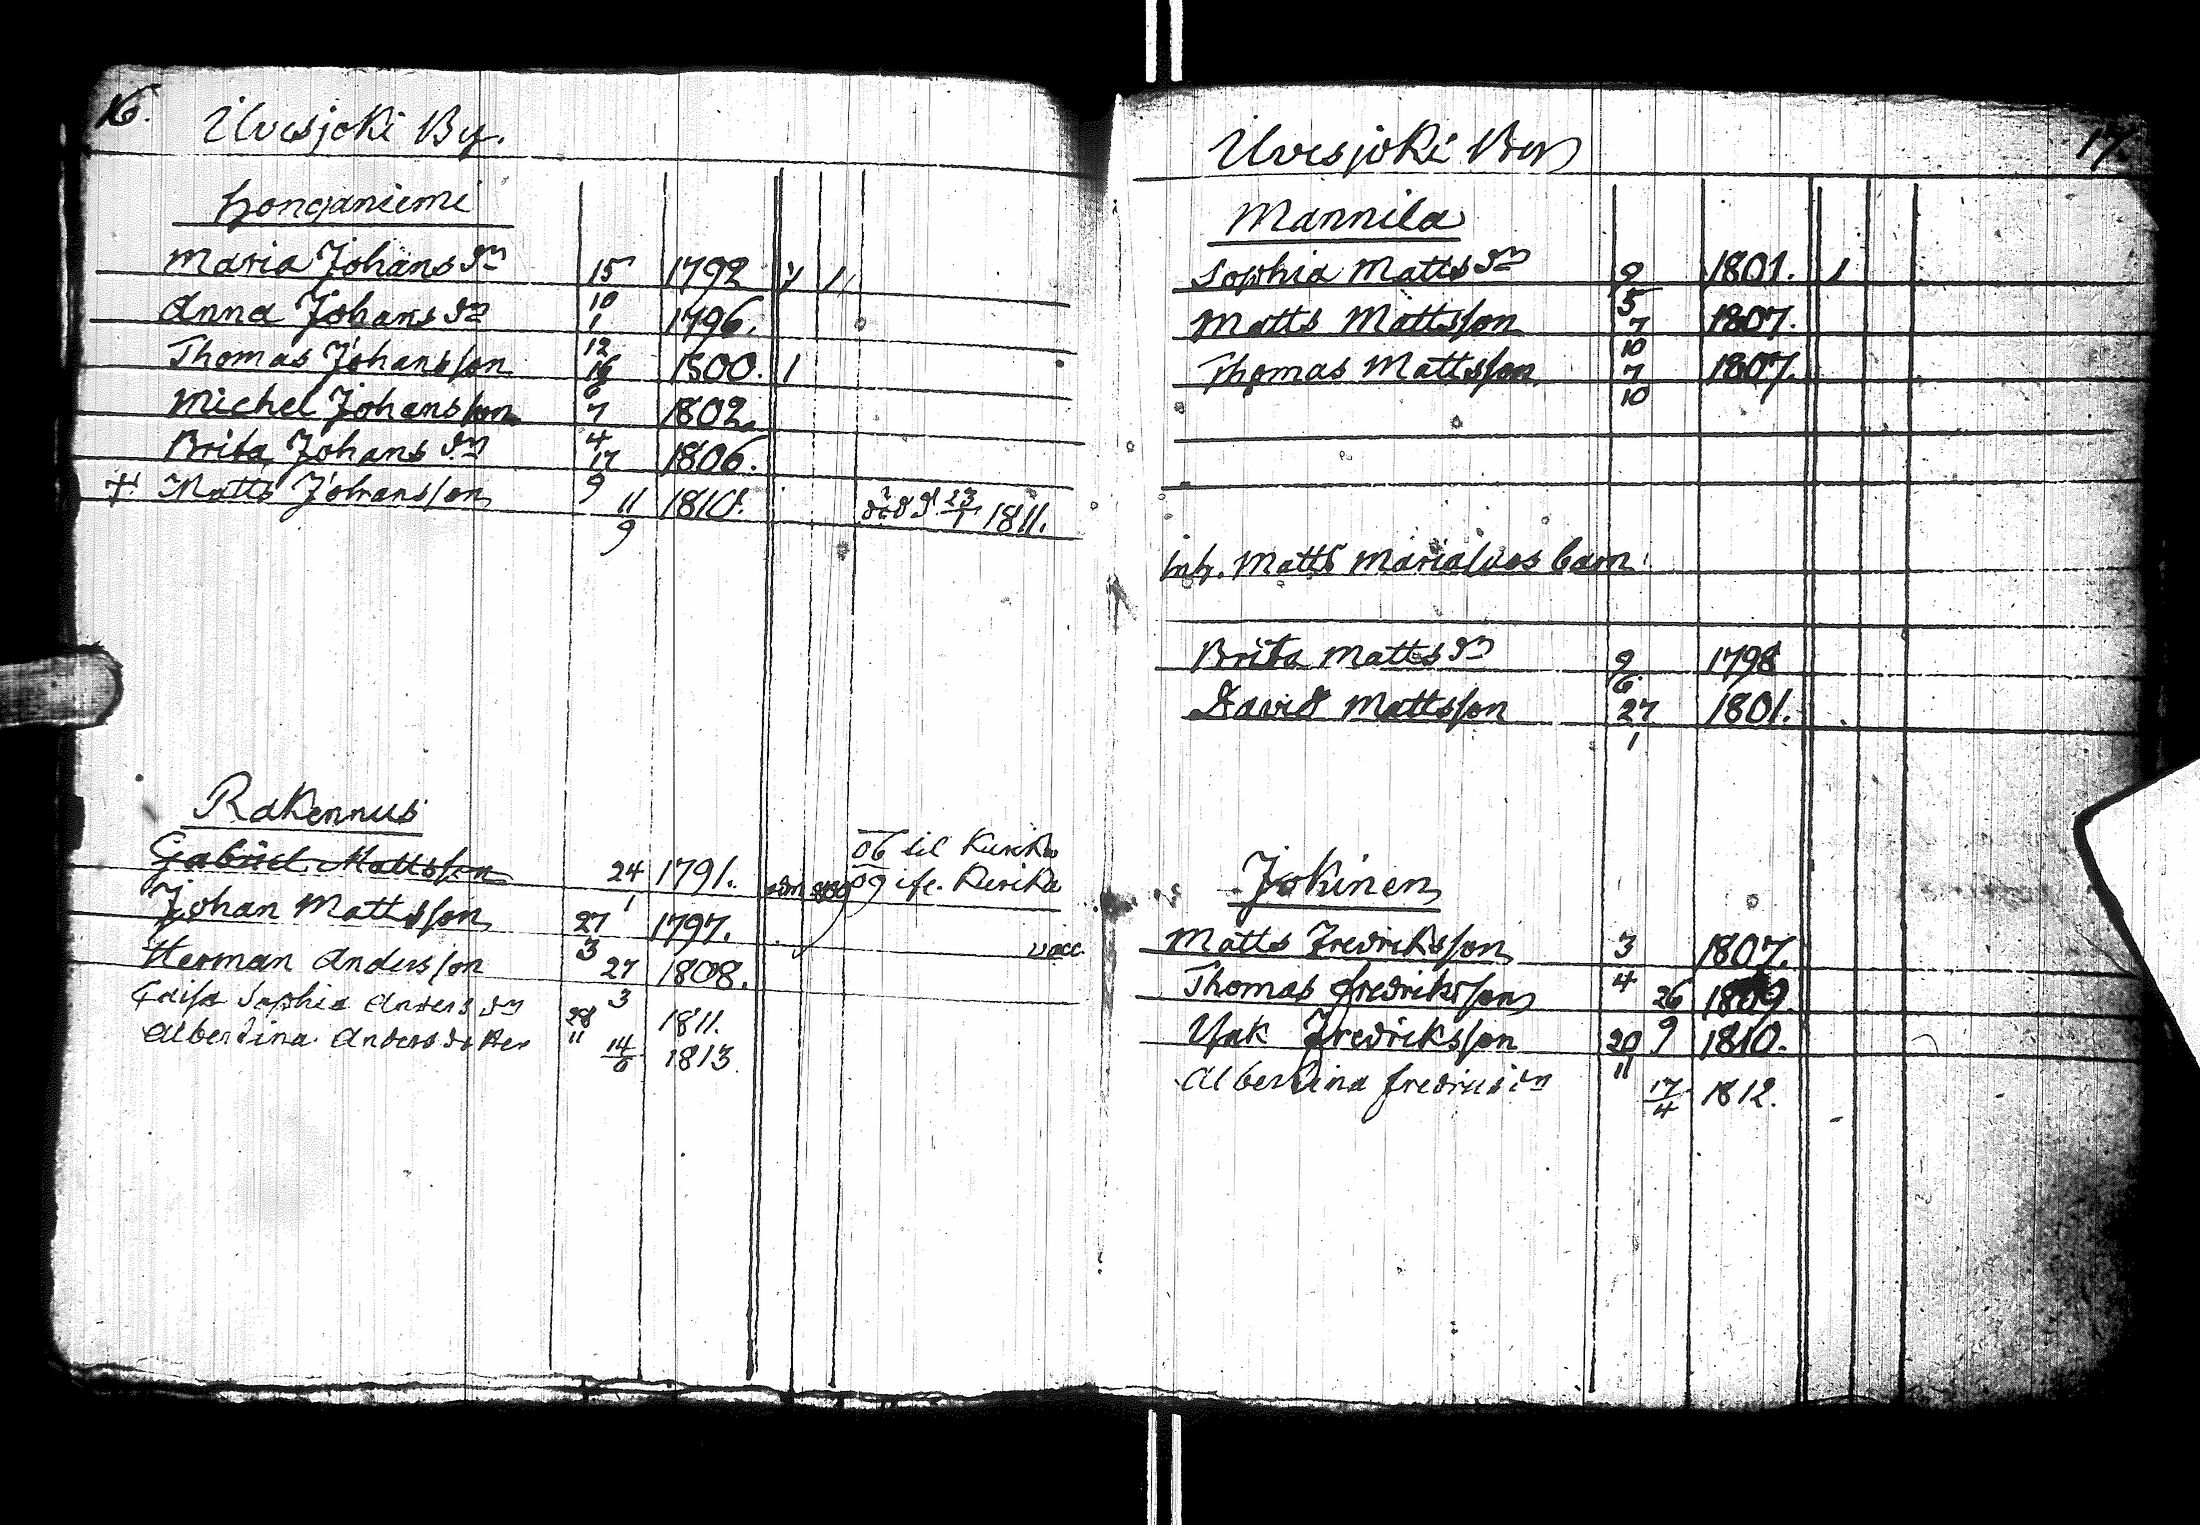 16.
Ilvesjoki By.
Honganiemi
Maria Johans dr 15/10 1792 1 1
Anna Johans dr 1/12 1796.
Thomas Johansson 16/6 1800. 1
Michel Johansson 7/4 1802.
Brita Johans dr 17/9 1806.
+ Matts Johansson 11/9 1810. död d 23/1 1811.
Rakennus
Gabriel Mattsson 24/1 1791. 06 til Kurika
Johan Mattsson 27/3 1797. 09 Kurika
Herman Andersson 27/3 1808. vacc.
Caisa Sophia Anders dr 28/11 1811.
Albertina Anders dotter 14/6 1813.
17.
Ilvesjoki By
Mannila
Sophia Matts dr 9/5 1801. 1
Matts Mattsson 7/10 1807.
Thomas Mattsson 7/10 1807.
Inh. Matts barn
Brita Matts dr 9/6 1798
David Mattsson 27/1 1801.
Jokinen
Matts Fredriksson 3/4 1807.
Thomas Fredriksson 26/9 1809.
Isak Fredriksson 20/11 1810.
Albertina Fredrics dr 17/4 1812.